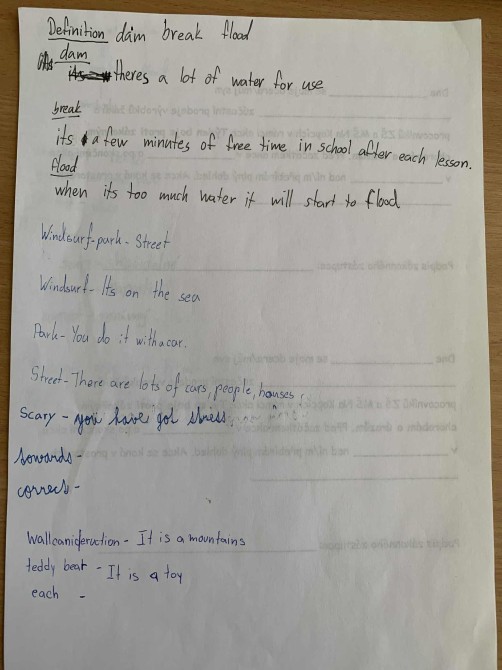 Definition dam break flood
dam
theres a lot of water for use
break
its a few minutes of free time in school after each lesson.
flood
when its too much water it will start to flood
Windsurf-park-Street
Windsurf-Its on the sea
Park-You do it with a car.
Street-There are lots of cars, people, houses,
Scary - you have got stress
towards-
correct-
wallcanideruction - It is a mountains
teddy bear - It is a toy
each -